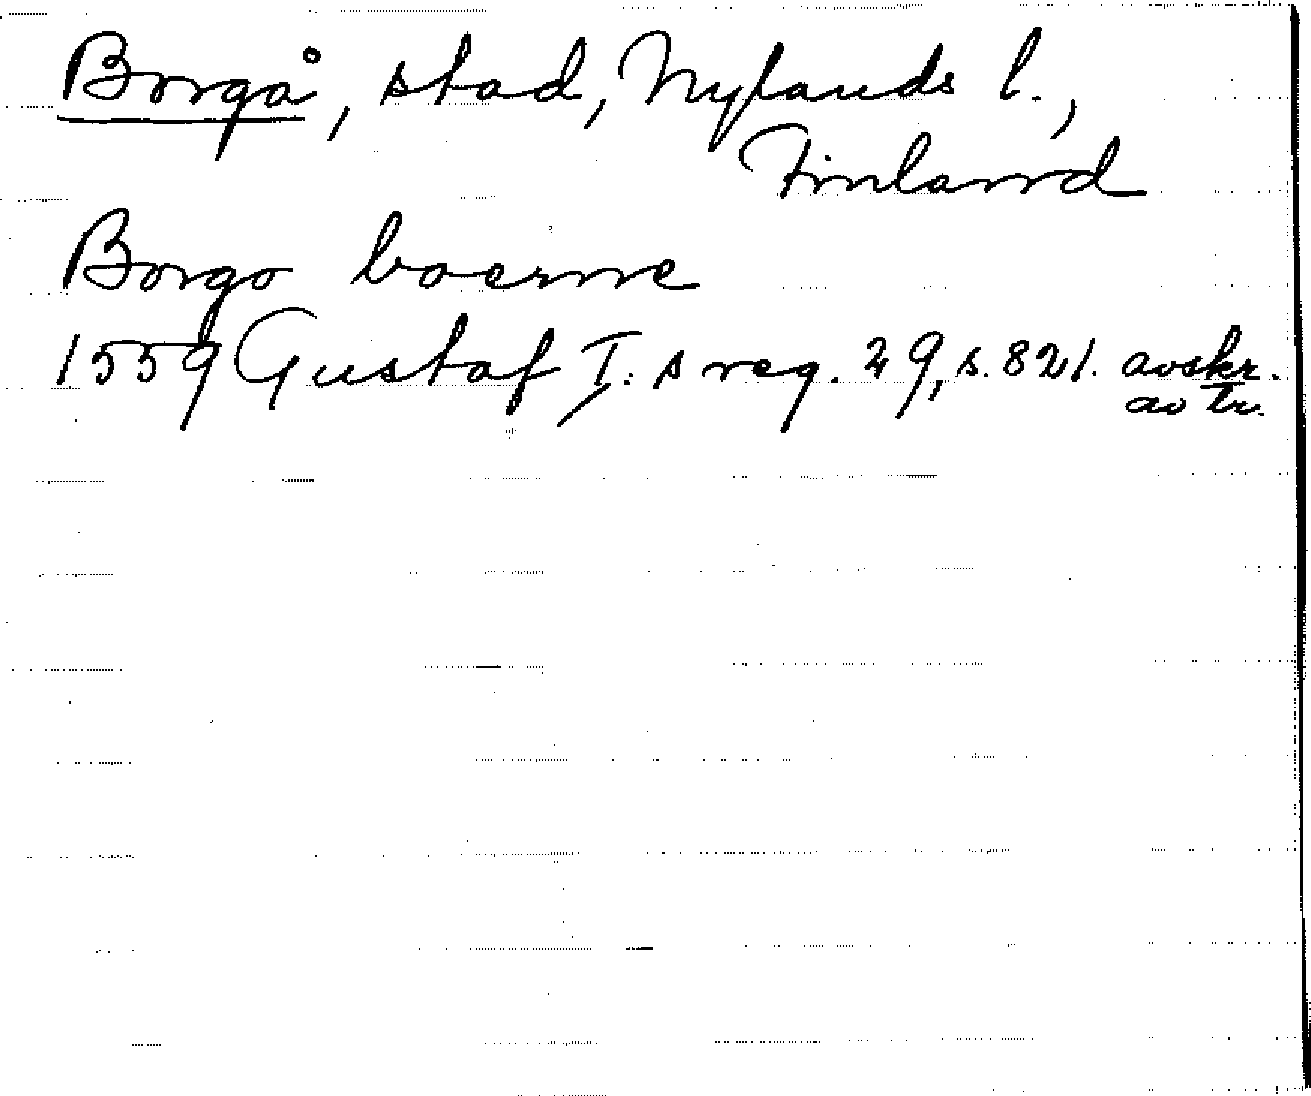 Borgå, stad, Nylands l.,
Finland
Borgo boerne
1559 Gustaf I:s reg. 29, s. 821. avskr.
av tr.